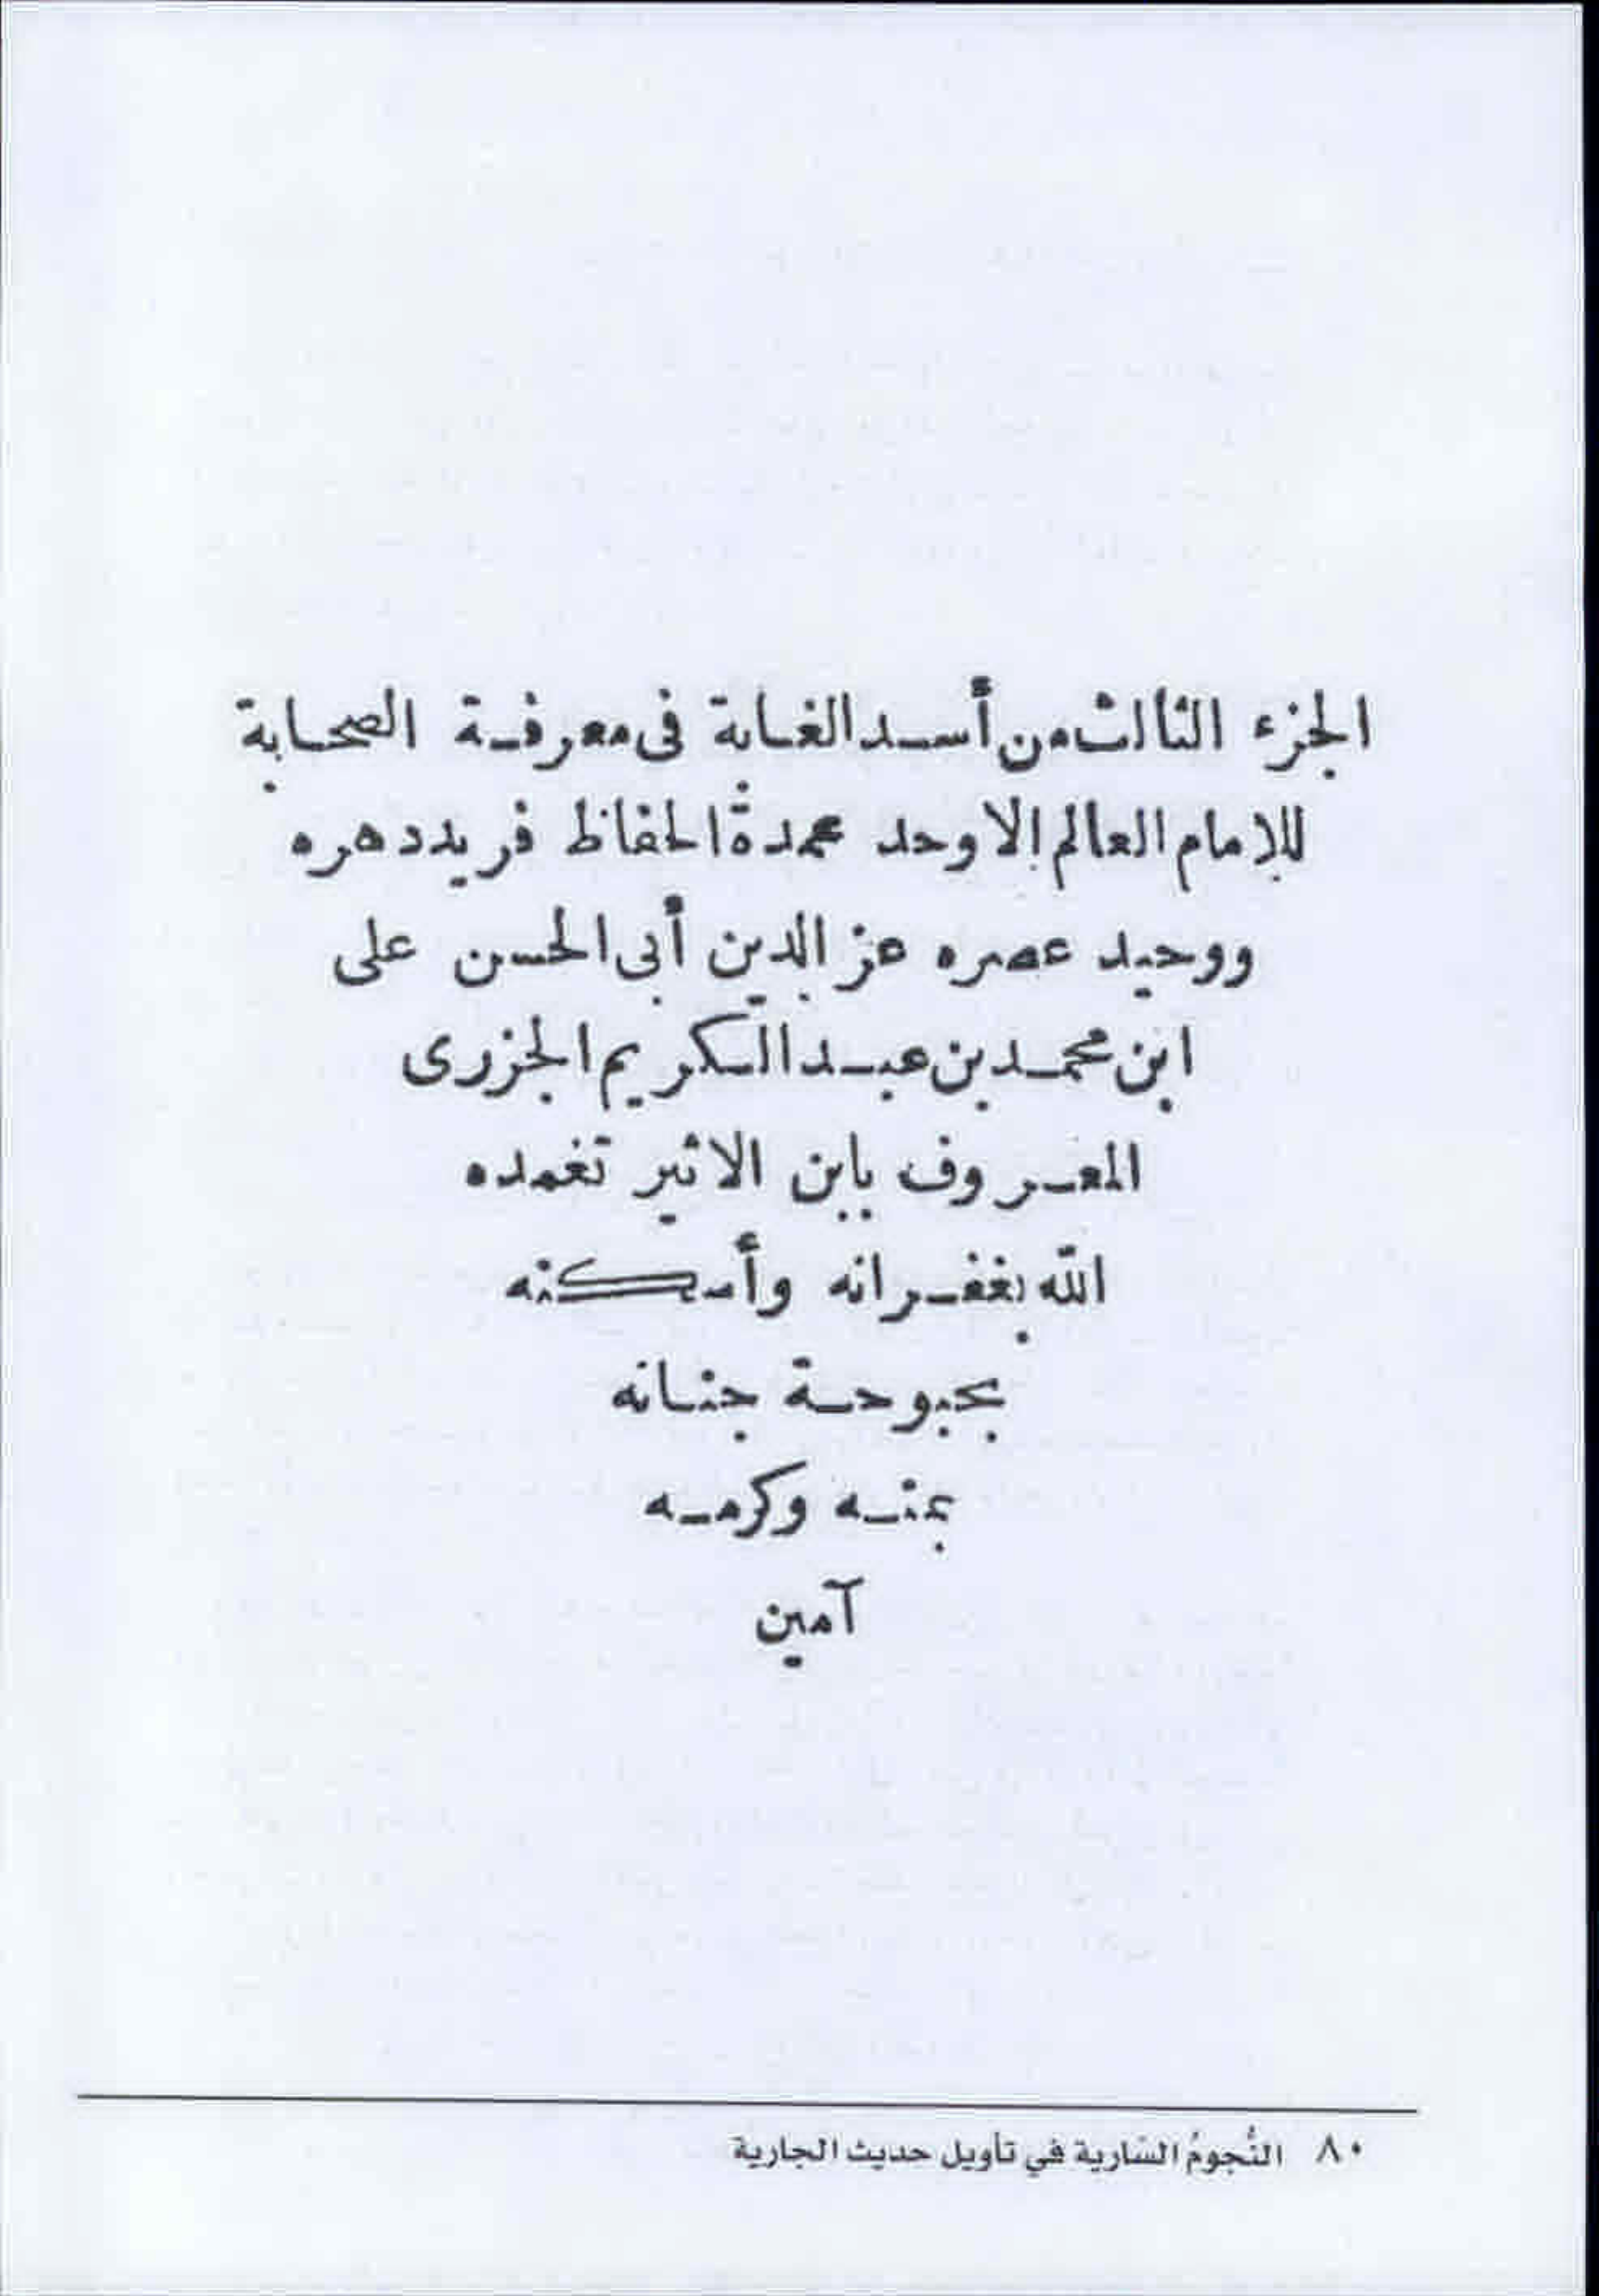 الجزء الثالث من أسد الغابة فى معرفة الصحابة
للإمام العالم الاوحد عمدة الحفاظ فريد دهره
ووحيد عصره عز الدين أبى الحسن على
ابن محمد بن عبد الكريم الجزرى
المعروف بابن الاثير تغمده
الله بغفرانه وأسكنه
بحبوحة جنانه
بمنه وكرمه
آمين
٨٠ النُّجومُ السَّارية في تأويل حديث الجارية